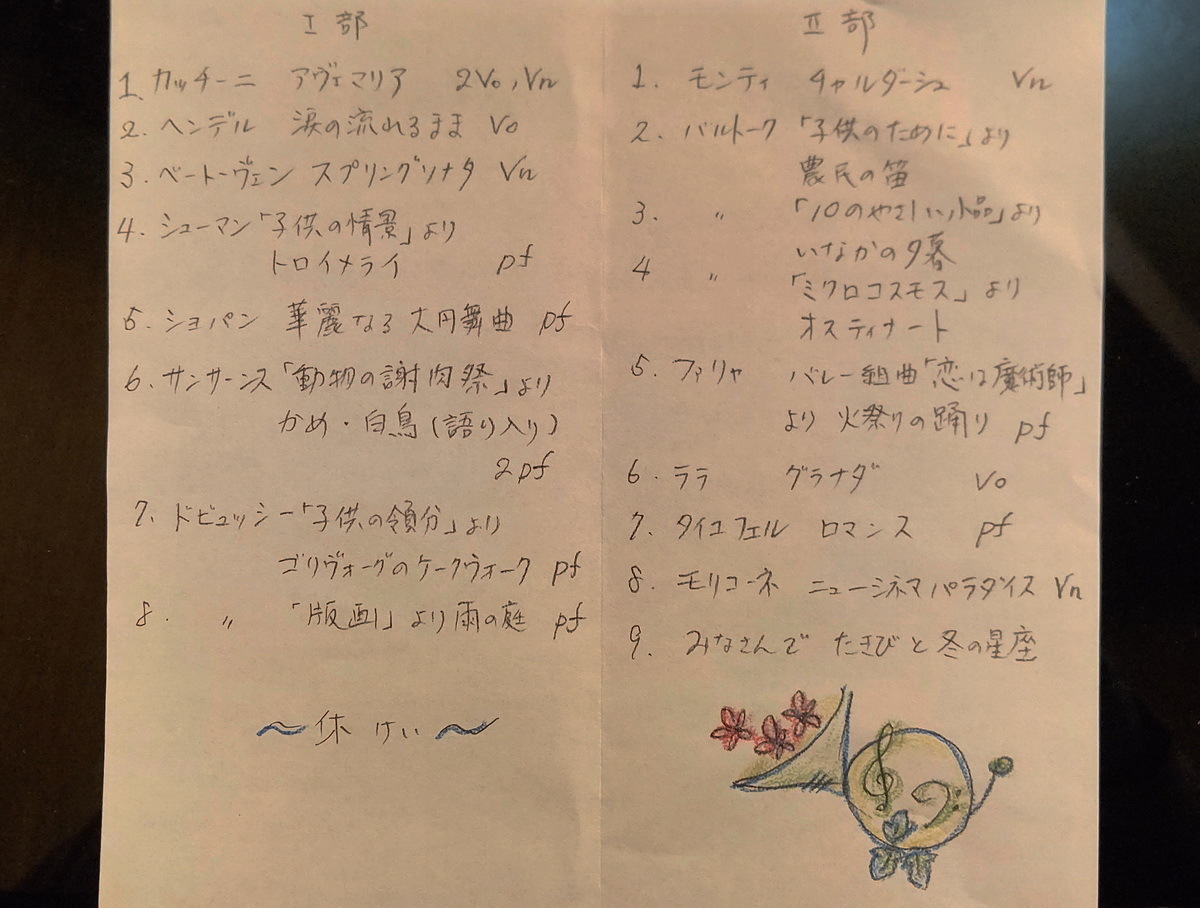 I 部
1. カッチーニ アヴェマリア 2Vo, Vn
2. ヘンデル 涙の流れるまま Vo
3. ベートーヴェン スプリングソナタ Vn
4. シューマン「子供の情景」より
トロイメライ pf
5. ショパン 華麗なる大円舞曲 pf
6. サンサーンス「動物の謝肉祭」より
かめ・白鳥(語り入り)
2pf
7. ドビュッシー「子供の領分」より
ゴリヴォーグのケークウォーク pf
8. 〃 「版画」より雨の庭 pf
〜休けい〜
II 部
1. モンティ チャルダーシュ Vn
2. バルトーク 「子供のために」より
農民の笛
3. 〃 「10のやさしい小品」より
いなかの夕暮
4 〃 「ミクロコスモス」より
オスティナート
5. ファリャ バレー組曲「恋は魔術師」
より 火祭りの踊り pf
6. ララ グラナダ Vo
7. タイユフェル ロマンス pf
8. モリコーネ ニューシネマパラダイス Vn
9. みなさんで たきびと冬の星座